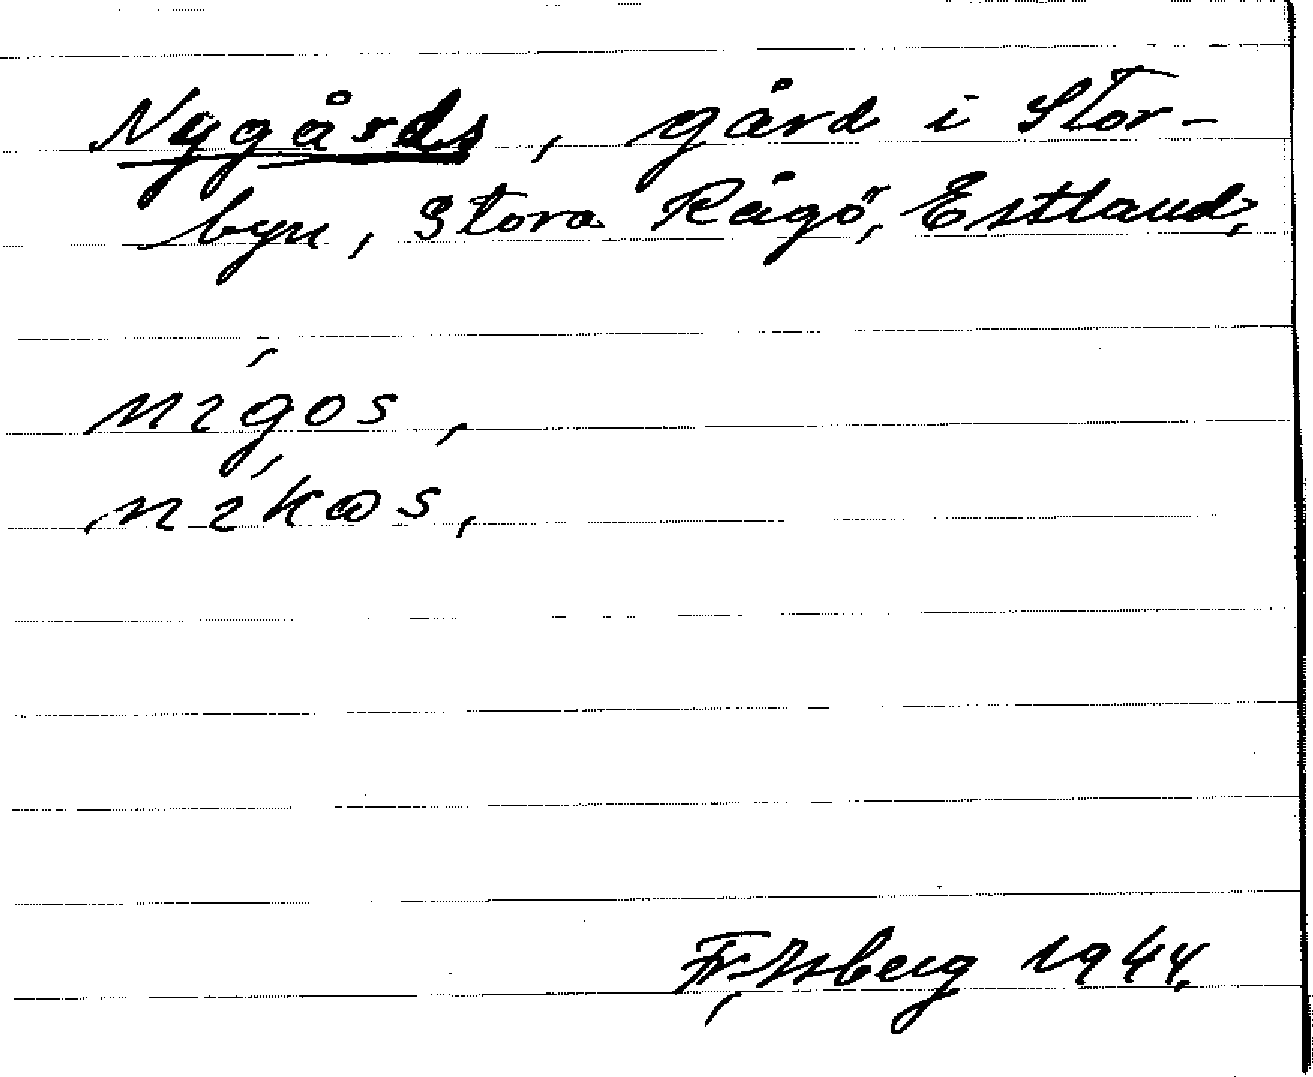 Nygårds, gård i Stor-
byn, Stora Rågö, Estland.
nígos,
níkas,
1944.